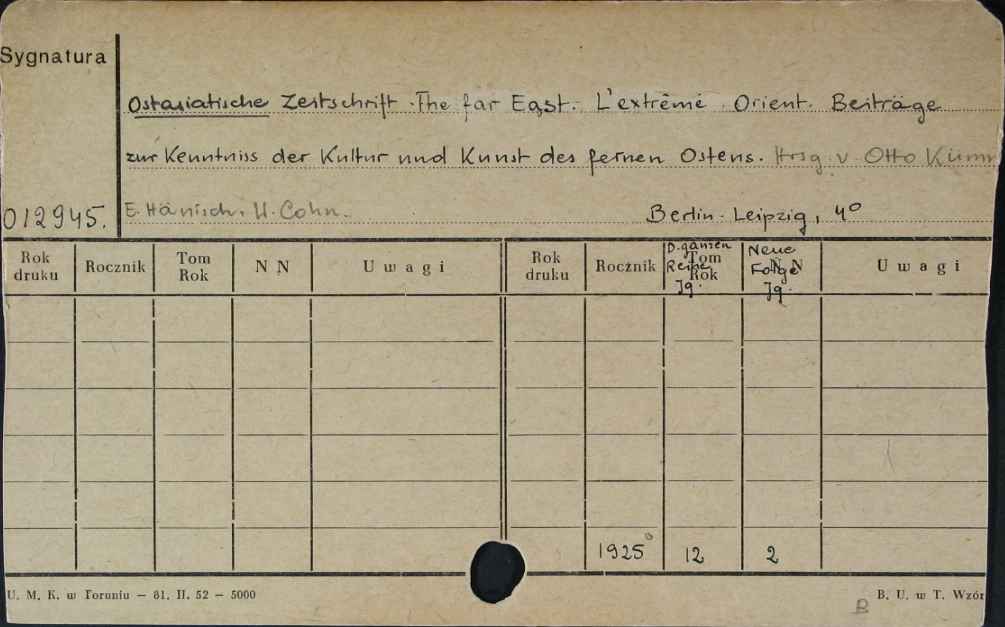 Sygnatura
Ostasiatische Zeitschrift. The far East. L'extrême Orient. Beiträge
zur Kenntniss der Kultur und Kunst des fernen Ostens. Hrsg. v. Otto Kümm
012945. E. Hänisch. U. Cohn. Berlin-Leipzig, 4°
Rok druku Rocznik Tom Rok N N Uwagi Rok druku Rocznik Tom Rok N N Uwagi
D. ganzen Reihe Jg. Neue Folge Jg.
1925 12 2
U. M. K. w Toruniu — 81. II. 52 — 5000 B B. U. w T. Wzór